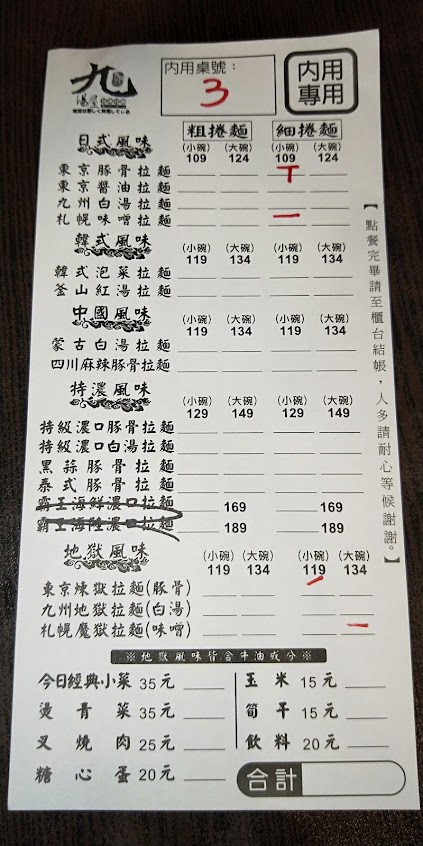 九
湯屋
内用桌號：
3
内用
專用
粗捲麵 細捲麵
日式風味 (小碗) 109 (大碗) 124 (小碗) 109 (大碗) 124
東京豚骨拉麵 T
東京醬油拉麵
九州白湯拉麵
札幌味噌拉麵 一
韓式風味 (小碗) 119 (大碗) 134 (小碗) 119 (大碗) 134
韓式泡菜拉麵
釜山紅湯拉麵
中國風味 (小碗) 119 (大碗) 134 (小碗) 119 (大碗) 134
蒙古白湯拉麵
四川麻辣豚骨拉麵
特濃風味 (小碗) 129 (大碗) 149 (小碗) 129 (大碗) 149
特級濃口豚骨拉麵
特級濃口白湯拉麵
黑蒜豚骨拉麵
泰式豚骨拉麵
霸王海鮮濃口拉麵 169 169
霸王海陸濃口拉麵 189 189
地獄風味 (小碗) 119 (大碗) 134 (小碗) 119 (大碗) 134
東京煉獄拉麵(豚骨) 一
九州地獄拉麵(白湯)
札幌魔獄拉麵(味噌) 一
※地獄風味皆含牛油成分※
今日經典小菜 35元 玉米 15元
燙青菜 35元 筍干 15元
叉燒肉 25元 飲料 20元
糖心蛋 20元 合計
【點餐完畢請至櫃台結帳，人多請耐心等候謝謝。】